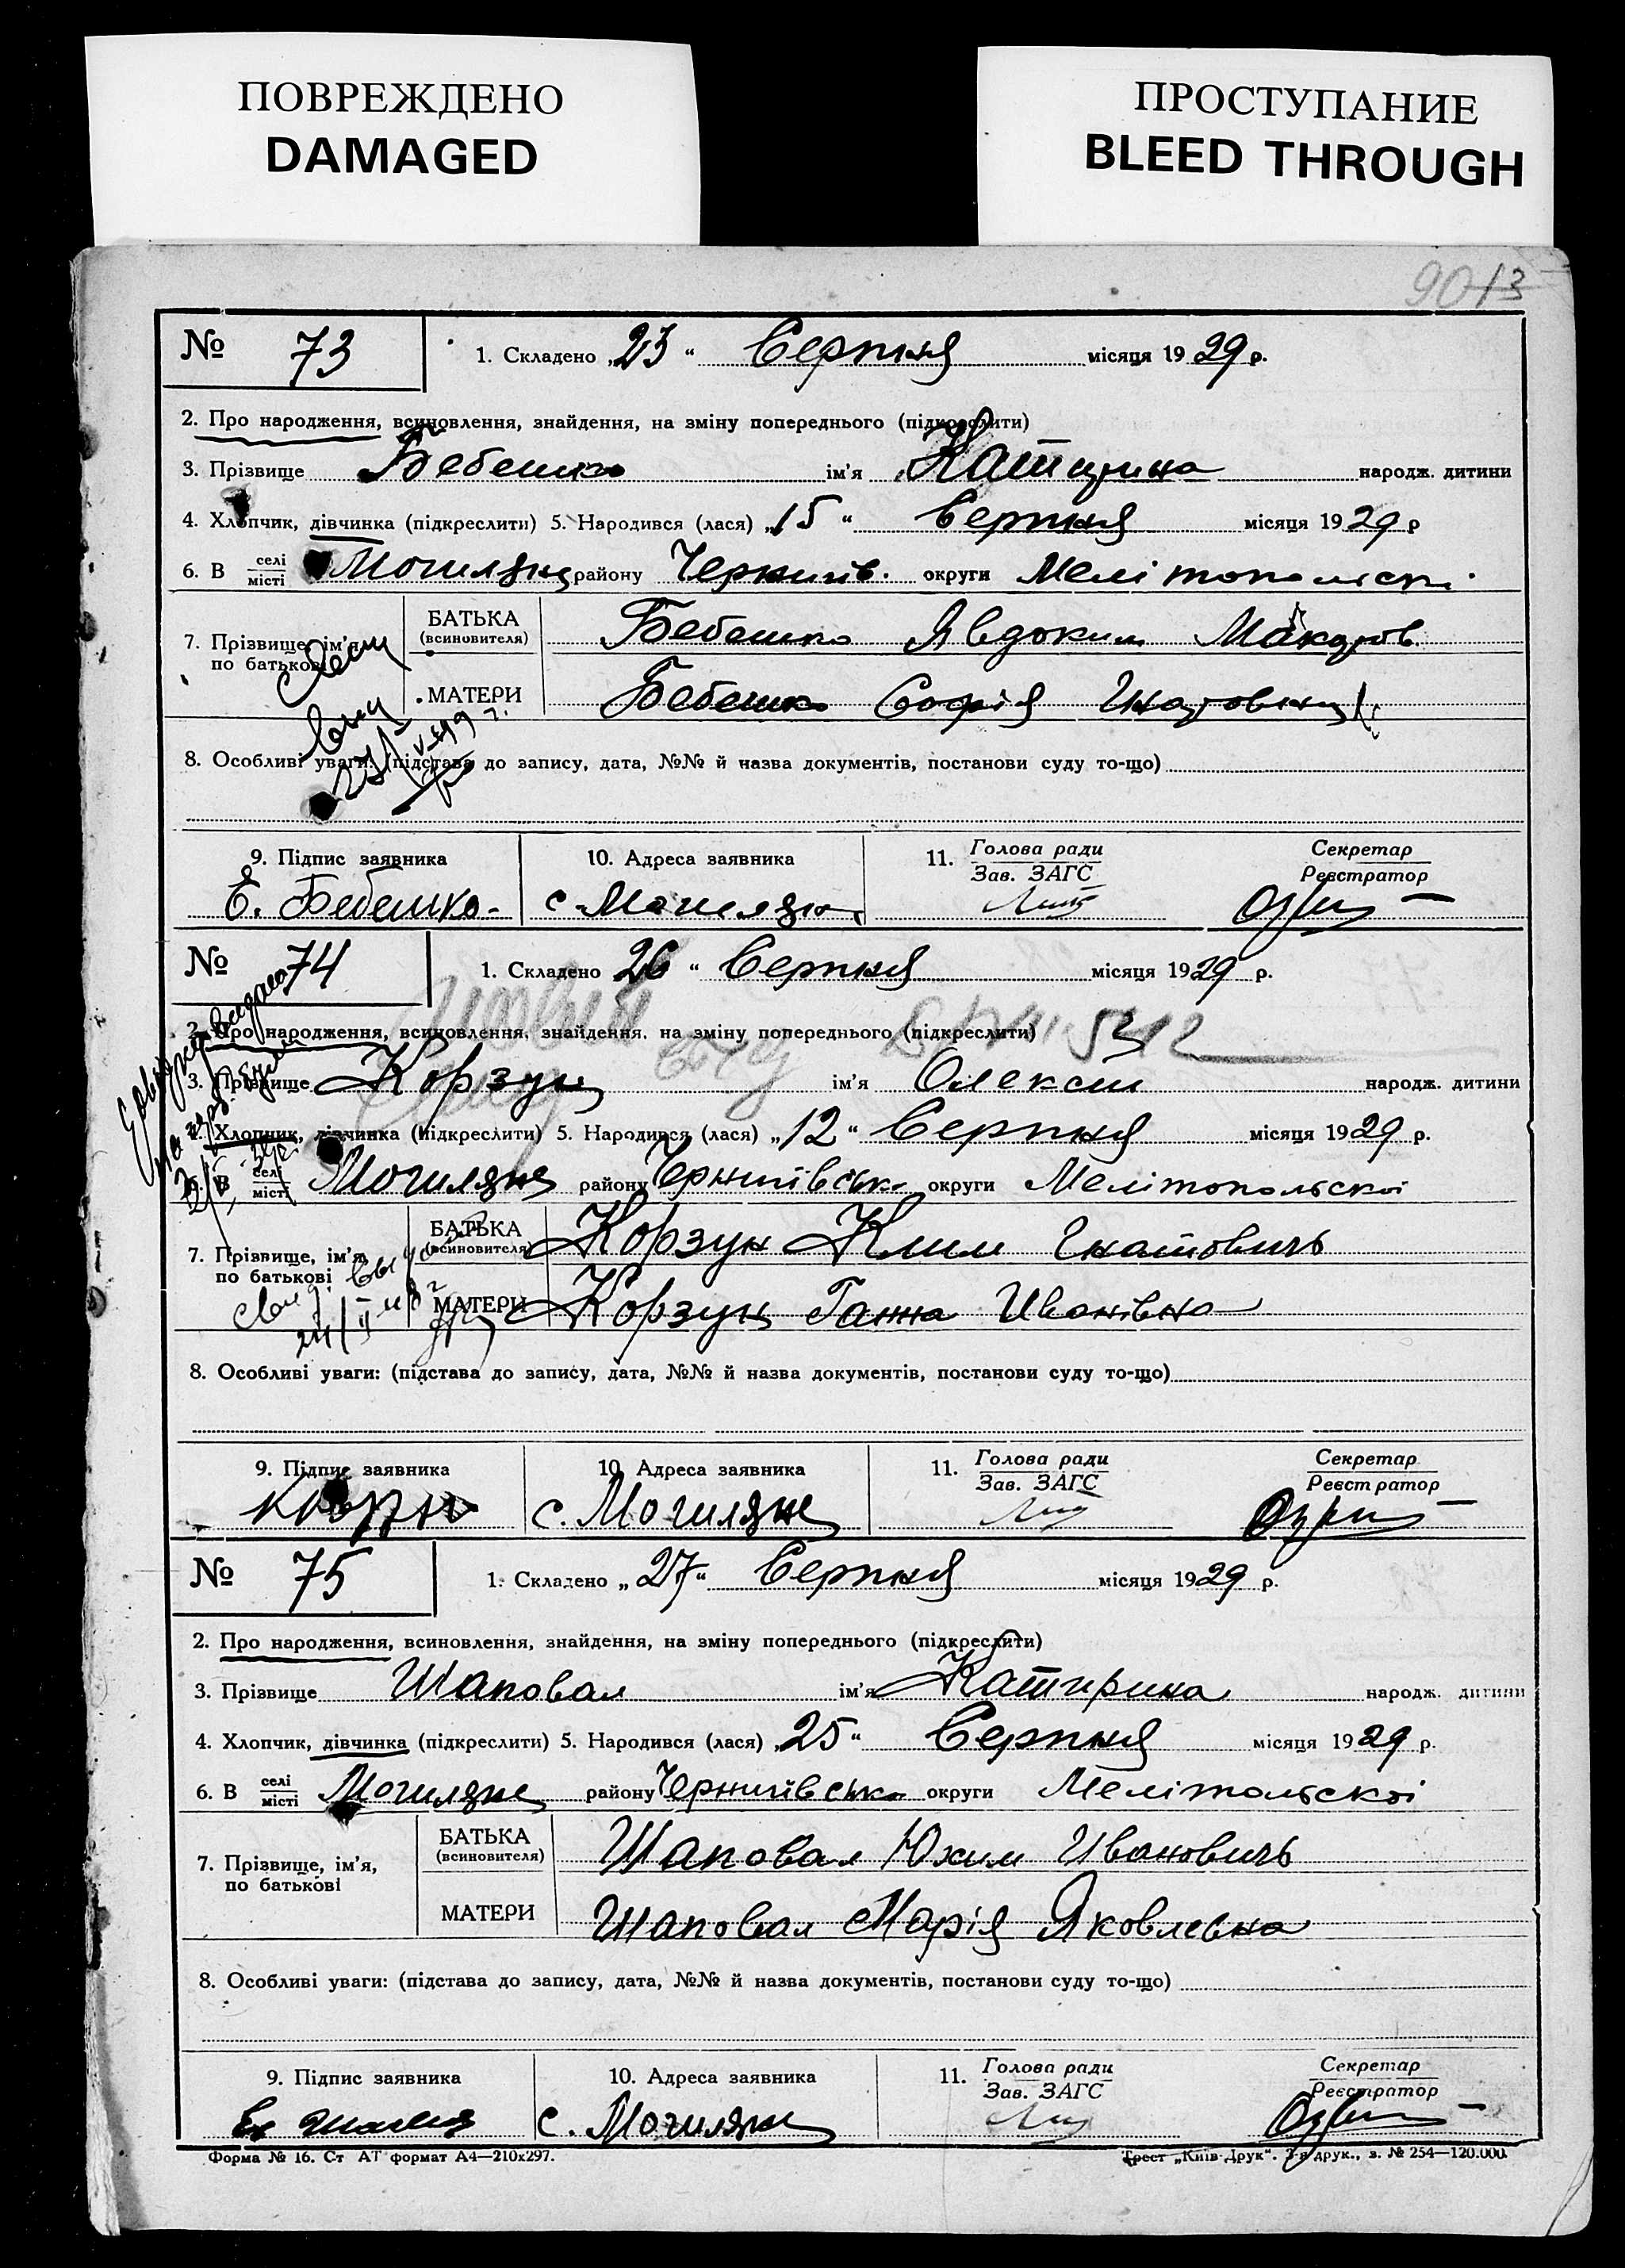 ПОВРЕЖДЕНО
DAMAGED
ПРОСТУПАНИЕ
BLEED THROUGH
90 13
№ 73 1. Складено „23“ Серпня місяця 1929 р.
2. Про народження, всиновлення, знайдення, на зміну попереднього (підкреслити)
3. Прізвище Бебешко ім'я Катирина народж. дитини
4. Хлопчик, дівчинка (підкреслити) 5. Народився (лася) „15“ Серпня місяця 1929 р
6. В селі/місті Могиляни району Чернигів. округи Мелітопольськ.
7. Прізвище, ім'я по батькові
БАТЬКА (всиновителя) Бебешко Явдоким Макаров
МАТЕРИ Бебешко Софія
8. Особливі уваги: (підстава до запису, дата, №№ й назва документів, постанови суду то-що)
9. Підпис заявника 10. Адреса заявника 11. Голова ради Секретар
Зав. ЗАГС Реєстратор
Є. Бебешко с. Могиляни
№ 74 1. Складено 26 “ Серпня місяця 1929 р.
2. Про народження, всиновлення, знайдення, на зміну попереднього (підкреслити)
3. Прізвище Корзун ім'я Олексій народж. дитини
4. Хлопчик, дівчинка (підкреслити) 5. Народився (лася) „12“ Серпня місяця 1929 р.
6. В селі/місті Могиляне району Чернигівсько округи Мелітопольскої
7. Прізвище, ім'я по батькові
БАТЬКА (всиновителя) Корзун Клим Гнатовичь
МАТЕРИ Корзун Ганна Иванівна
8. Особливі уваги: (підстава до запису, дата, №№ й назва документів, постанови суду то-що)
9. Підпис заявника 10. Адреса заявника 11. Голова ради Секретар
Зав. ЗАГС Реєстратор
с. Могиляне
№ 75 1. Складено „27“ Серпня місяця 1929 р.
2. Про народження, всиновлення, знайдення, на зміну попереднього (підкреслити)
3. Прізвище Шаповал ім'я Катирина народж. дитини
4. Хлопчик, дівчинка (підкреслити) 5. Народився (лася) „25“ Серпня місяця 1929 р.
6. В селі/місті Могиляне району Чернигівсько округи Мелітольскої
7. Прізвище, ім'я, по батькові
БАТЬКА (всиновителя) Шаповал Юхим Ивановичь
МАТЕРИ Шаповал Марія Яковлевна
8. Особливі уваги: (підстава до запису, дата, №№ й назва документів, постанови суду то-що)
9. Підпис заявника 10. Адреса заявника 11. Голова ради Секретар
Зав. ЗАГС Реєстратор
с. Могиляни
Форма № 16. Ст АТ формат А4—210х297. Трест „Київ-Друк“. 3-я друк., з. № 254—120.000.